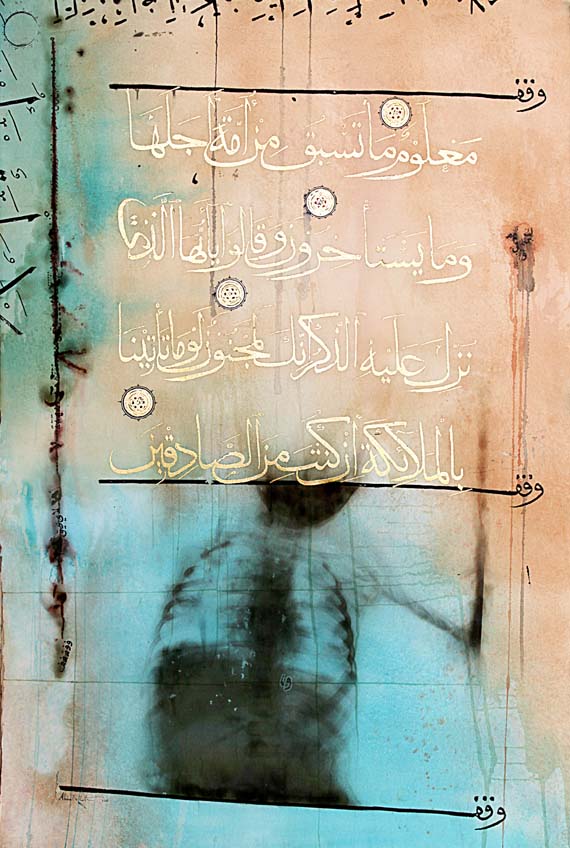 وقف
معلوم ما تسبق من أمة أجلها
وما يستأخرون وقالوا يأيها الذي
نزل عليه الذكر إنك لمجنون لو ما تأتينا
بالملائكة إن كنت من الصادقين
وقف
وقف